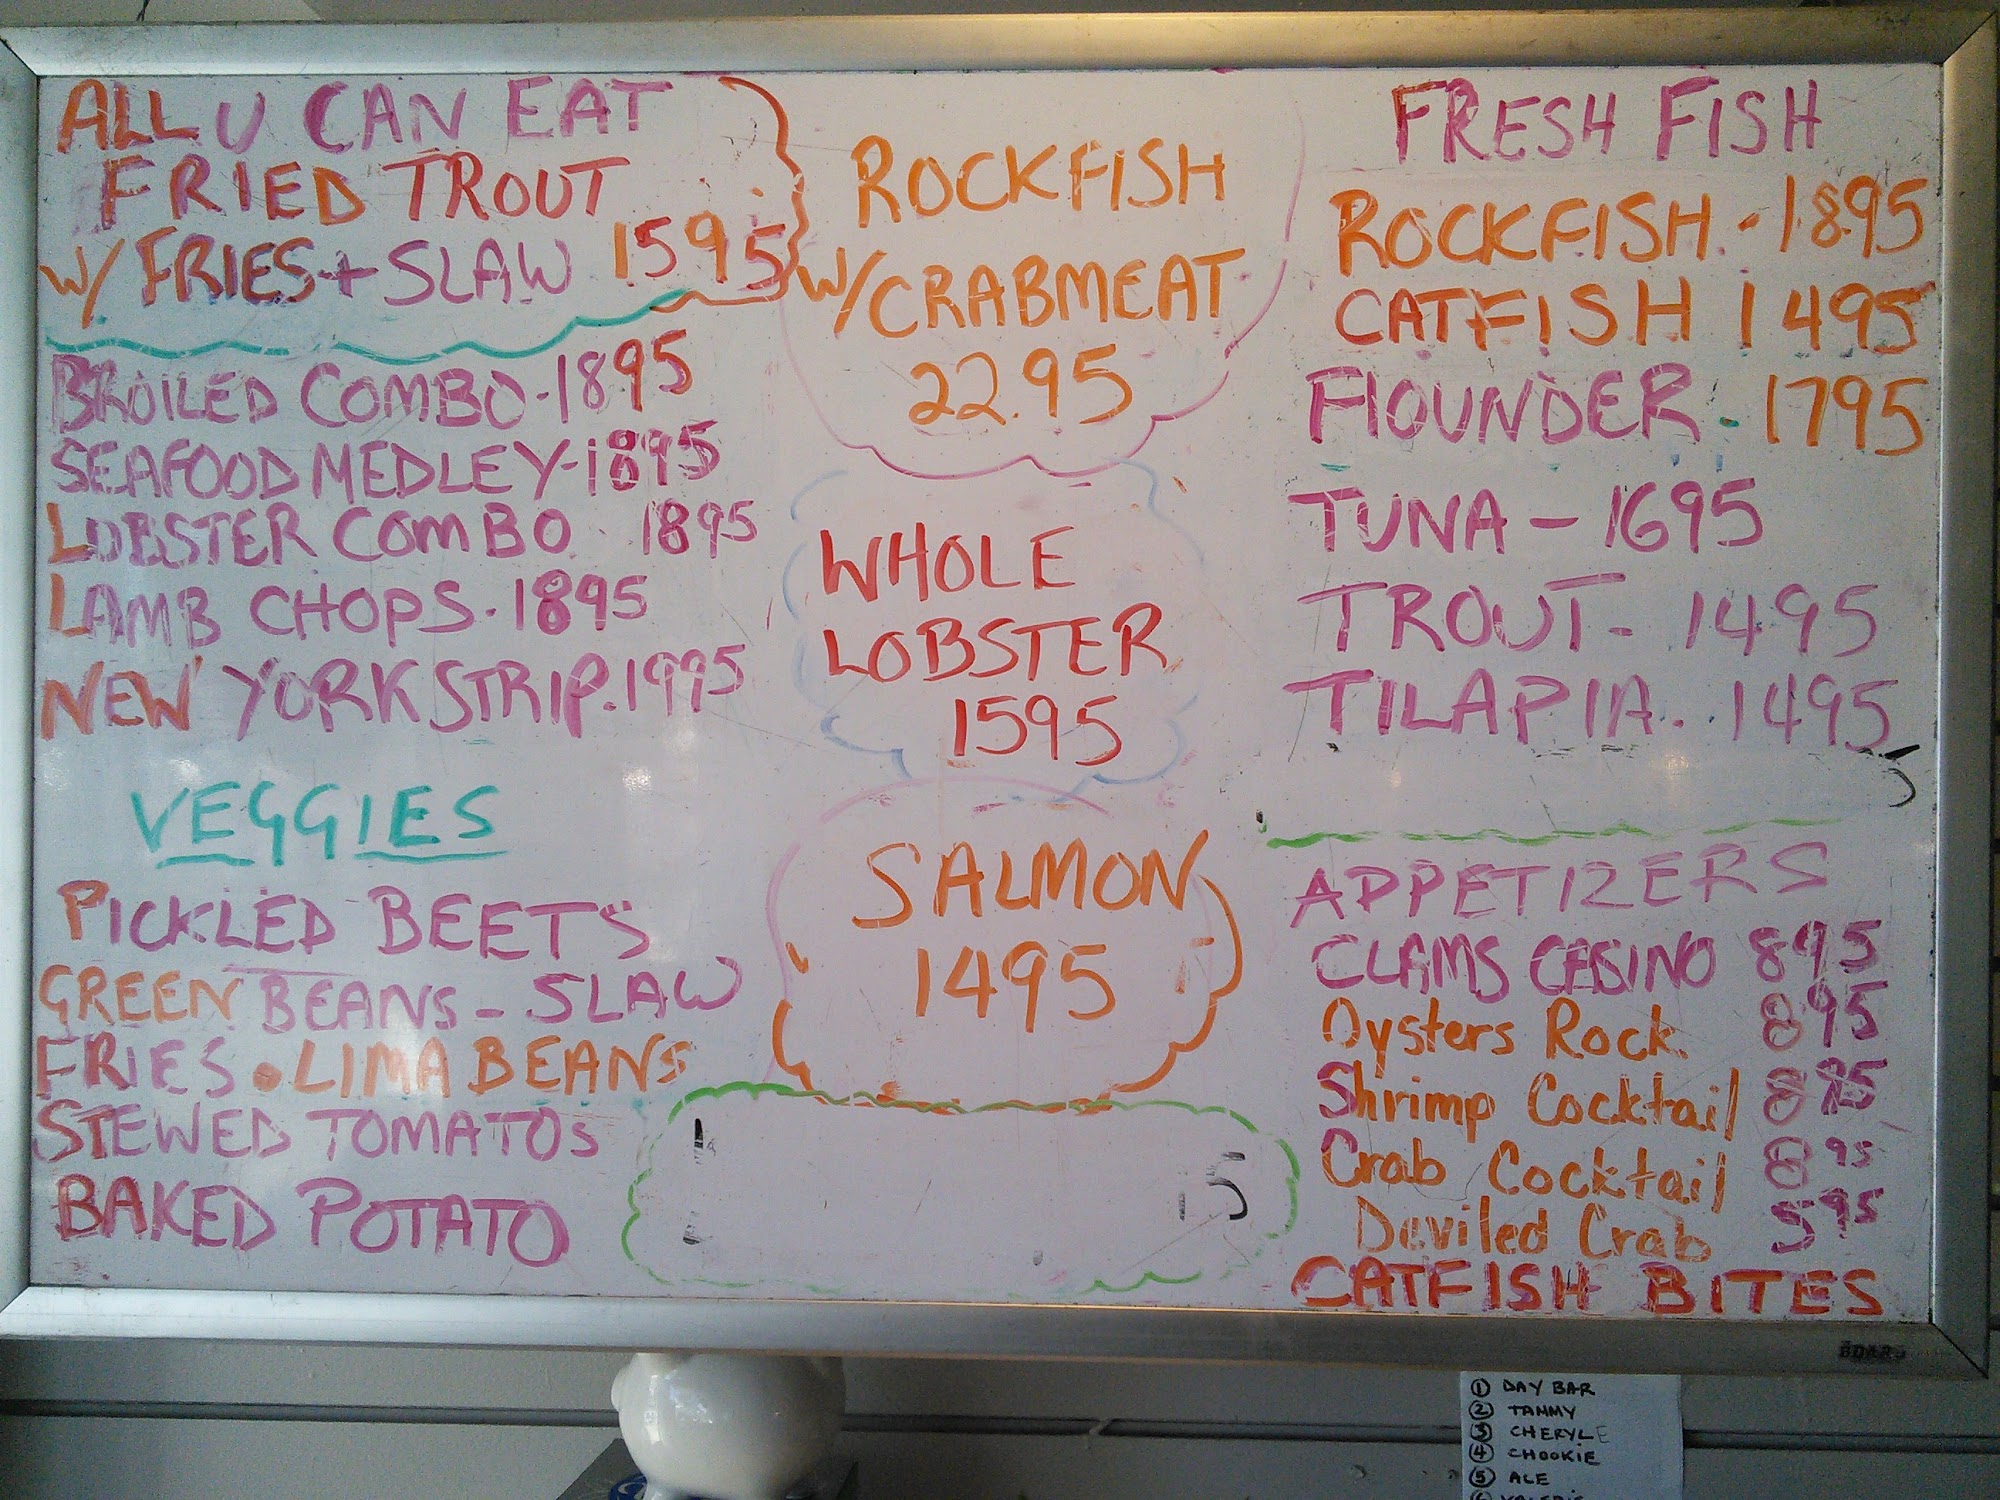 ALL U CAN EAT
FRIED TROUT
W/ FRIES + SLAW 1595
BROILED COMBO - 1895
SEAFOOD MEDLEY - 1895
LOBSTER COMBO 1895
LAMB CHOPS - 1895
NEW YORK STRIP . 1995
VEGGIES
PICKLED BEETS
GREEN BEANS - SLAW
FRIES • LIMA BEANS
STEWED TOMATOS
BAKED POTATO
ROCKFISH
W/ CRABMEAT
22.95
WHOLE
LOBSTER
1595
SALMON
1495
FRESH FISH
ROCKFISH - 1895
CATFISH 1495
FlOUNDER - 1795
TUNA - 1695
TROUT - 1495
TILAPIA - 1495
APPETIZERS
CLAMS CASINO 895
Oysters Rock. 895
Shrimp Cocktail 895
Crab Cocktail 895
Deviled Crab 595
CATFISH BITES
① DAY BAR
② TAMMY
③ CHERYLE
④ CHOOKIE
⑤ ALE